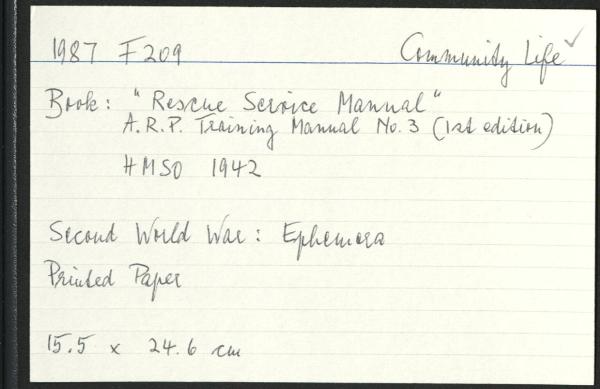 1987 F209 Community Life ✓
Book: "Rescue Service Manual"
A.R.P. Training Manual No. 3 (1st edition)
HMSO 1942
Second World War: Ephemera
Printed Paper
15.5 x 24.6 cm